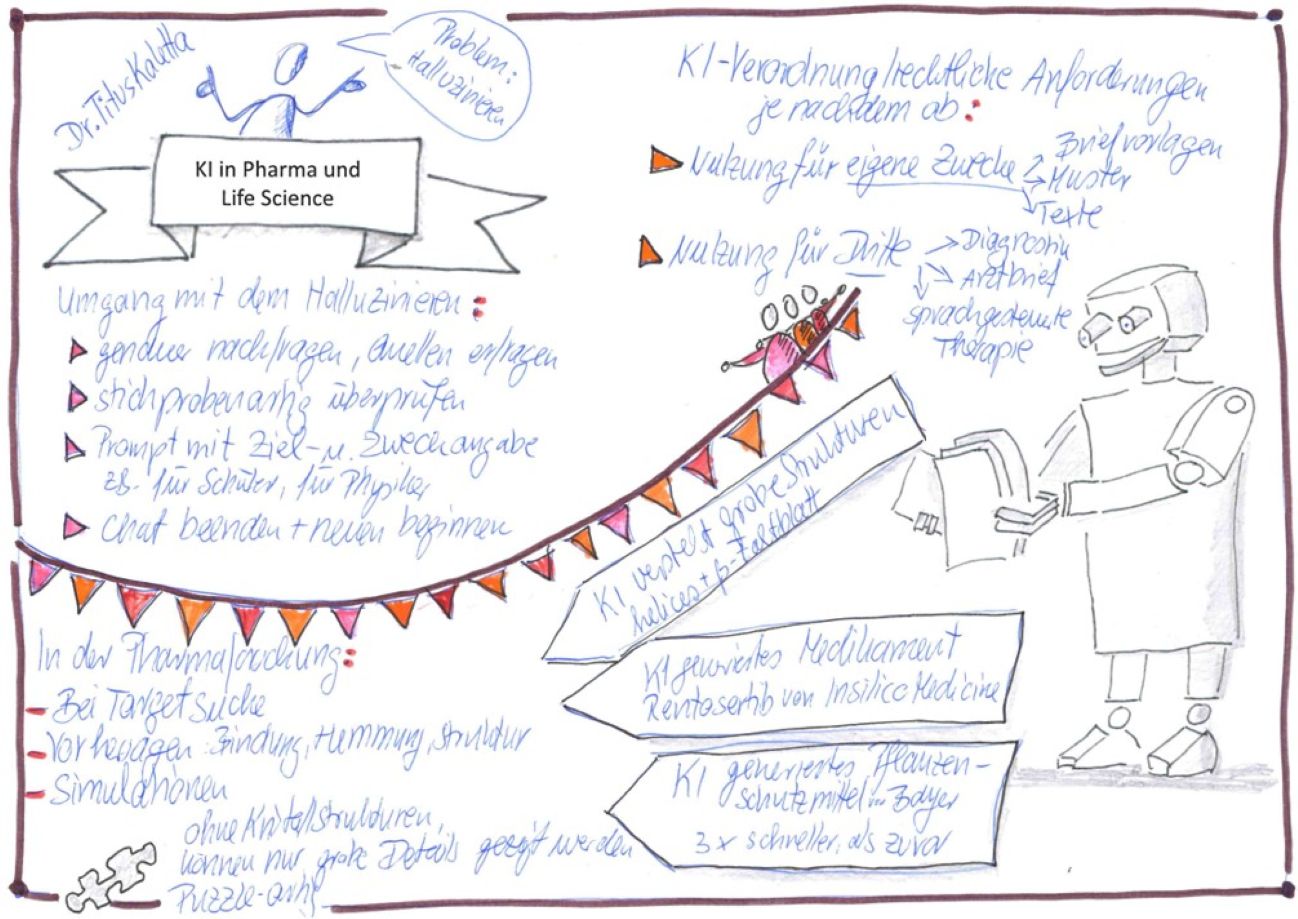 Dr. Titus Kaletta
Problem:
Halluzinieren
KI in Pharma und
Life Science
Umgang mit dem Halluzinieren:
genauer nachfragen, Quellen erfragen
stichprobenartig überprüfen
Prompt mit Ziel- u. Zweckangabe
zB. für Schüler, für Physiker
Chat beenden + neuen beginnen
KI-Verordnung/rechtliche Anforderungen
je nachdem ob:
Nutzung für eigene Zwecke
Briefvorlagen
Muster
Texte
Nutzung für Dritte
Diagnostik
Arztbrief
sprachgesteuerte
Therapie
In der Pharmaforschung:
Bei Targetsuche
Vorhersagen: Bindung, Hemmung, Struktur
Simulationen
ohne Kristallstrukturen,
können nur grobe Details gezeigt werden
Puzzle-artig
KI versteht grobe Strukturen
helices + β-Faltblatt
KI generiertes Medikament
Rentosertib von Insilico Medicine
KI generiertes Pflanzen-
schutzmittel von Bayer
3x schneller, als zuvor